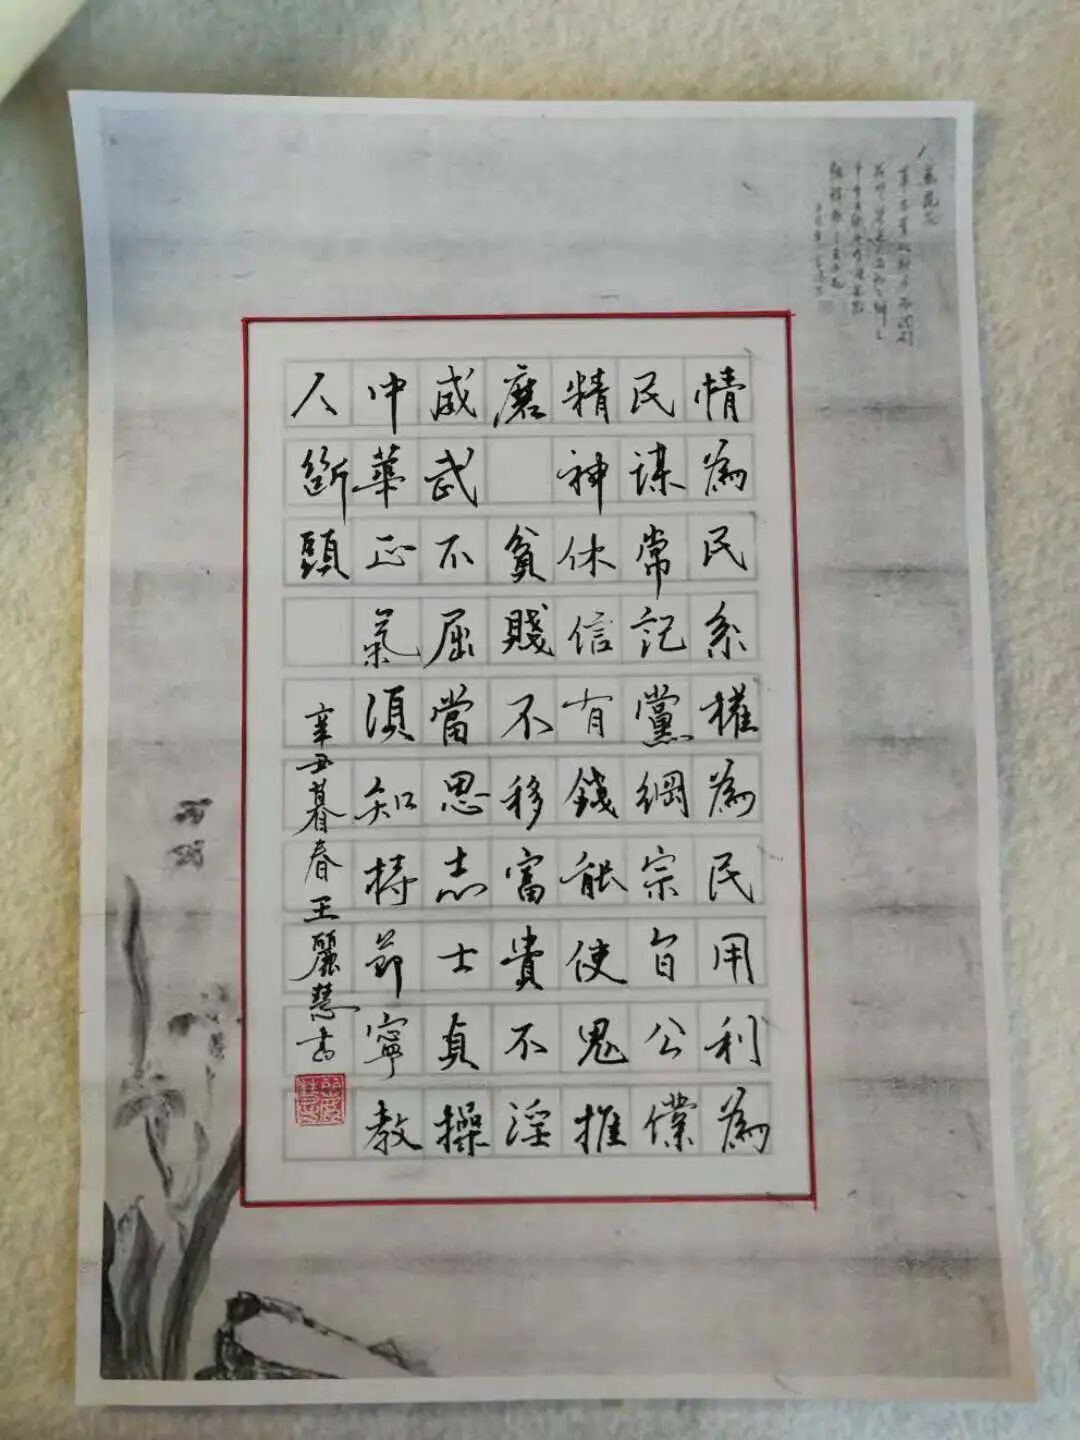 情為民系權為民用利為
民謀常記黨綱宗旨公僕
精神休信有錢能使鬼推
磨 貧賤不移富貴不淫
威武不屈當思志士貞操
中華正氣須知持節寧教
人斷頭 辛丑暮春王麗慧書